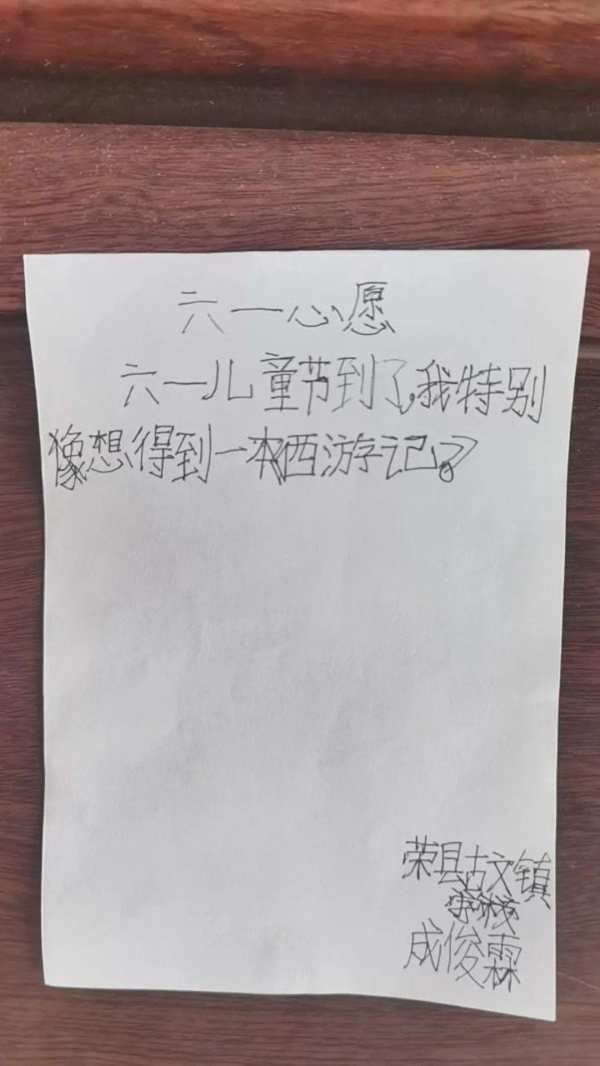 六一心愿
六一儿童节到了,我特别
像想得到一本西游记。
荣县古文镇
学校
成俊霖